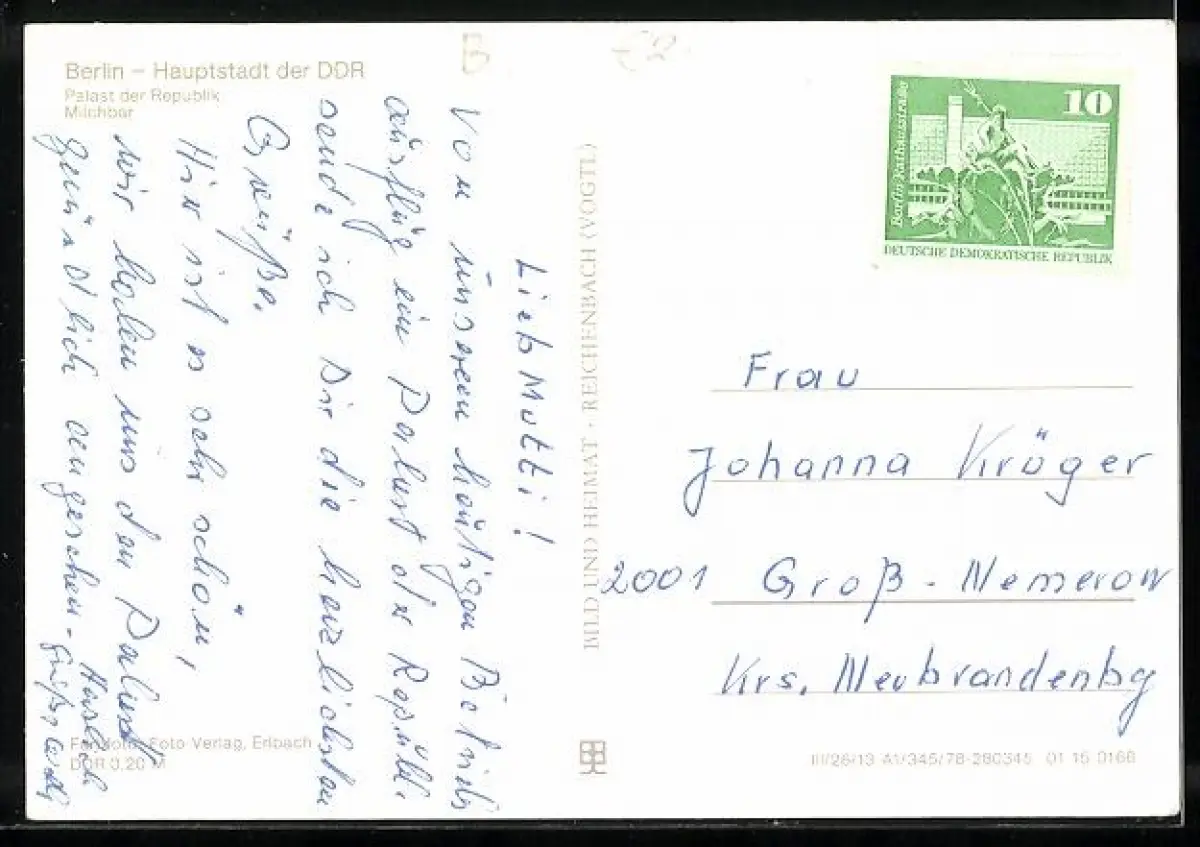 Berlin – Hauptstadt der DDR
Palast der Republik
Milchbar
Lieb Mutti!
Von unseren heutigen Betriebs
ausflug in Palast der Republ.
sende ich Dir die herzlichsten
Grüße.
Hier ist es sehr schön,
wir haben uns den Palast
gemütlich angesehen.
Herzlich
grüßt
Foto Verlag, Erlbach
DDR 0,20 M
BILD UND HEIMAT · REICHENBACH (VOGTL)
10
Berlin Rathausstraße
DEUTSCHE DEMOKRATISCHE REPUBLIK
Frau
Johanna Kröger
2001 Groß-Nemerow
Krs. Neubrandenbg
III/26/13 A1/345/78-280345 01 15 0166
B